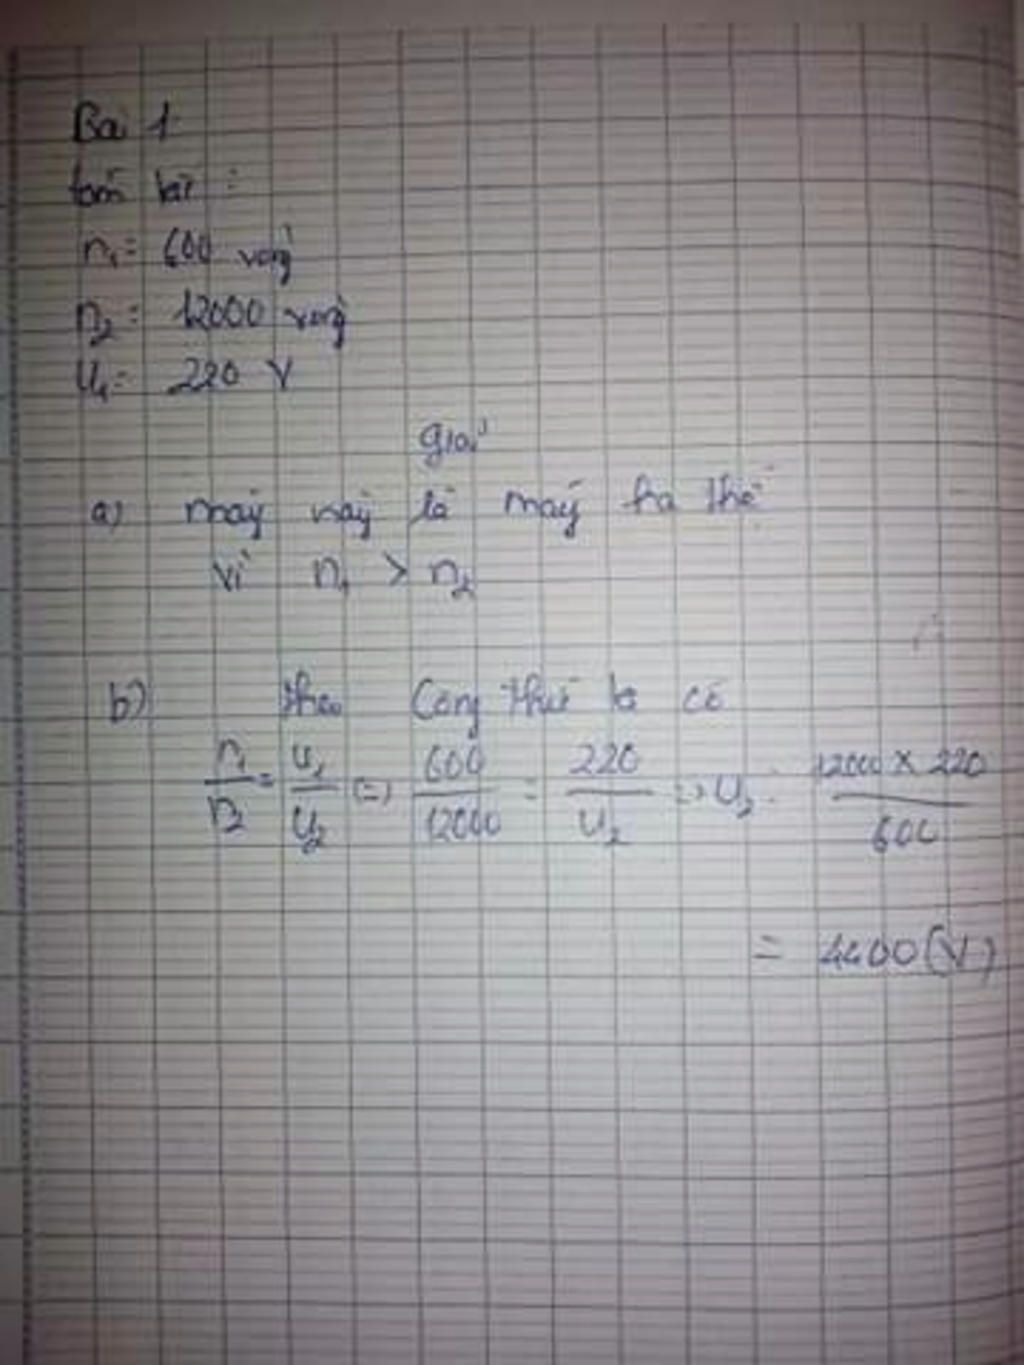 Bài 1
tóm tắt :
n₁ = 600 vòng
n₂ = 12000 vòng
U₁ = 220 V
Giải
a) máy này là máy hạ thế
vì n₁ > n₂
b) theo Công thức ta có
n₁/n₂ = U₁/U₂ => 600/12000 = 220/U₂ => U₂ = 12000 x 220/600
= 4400 (V)